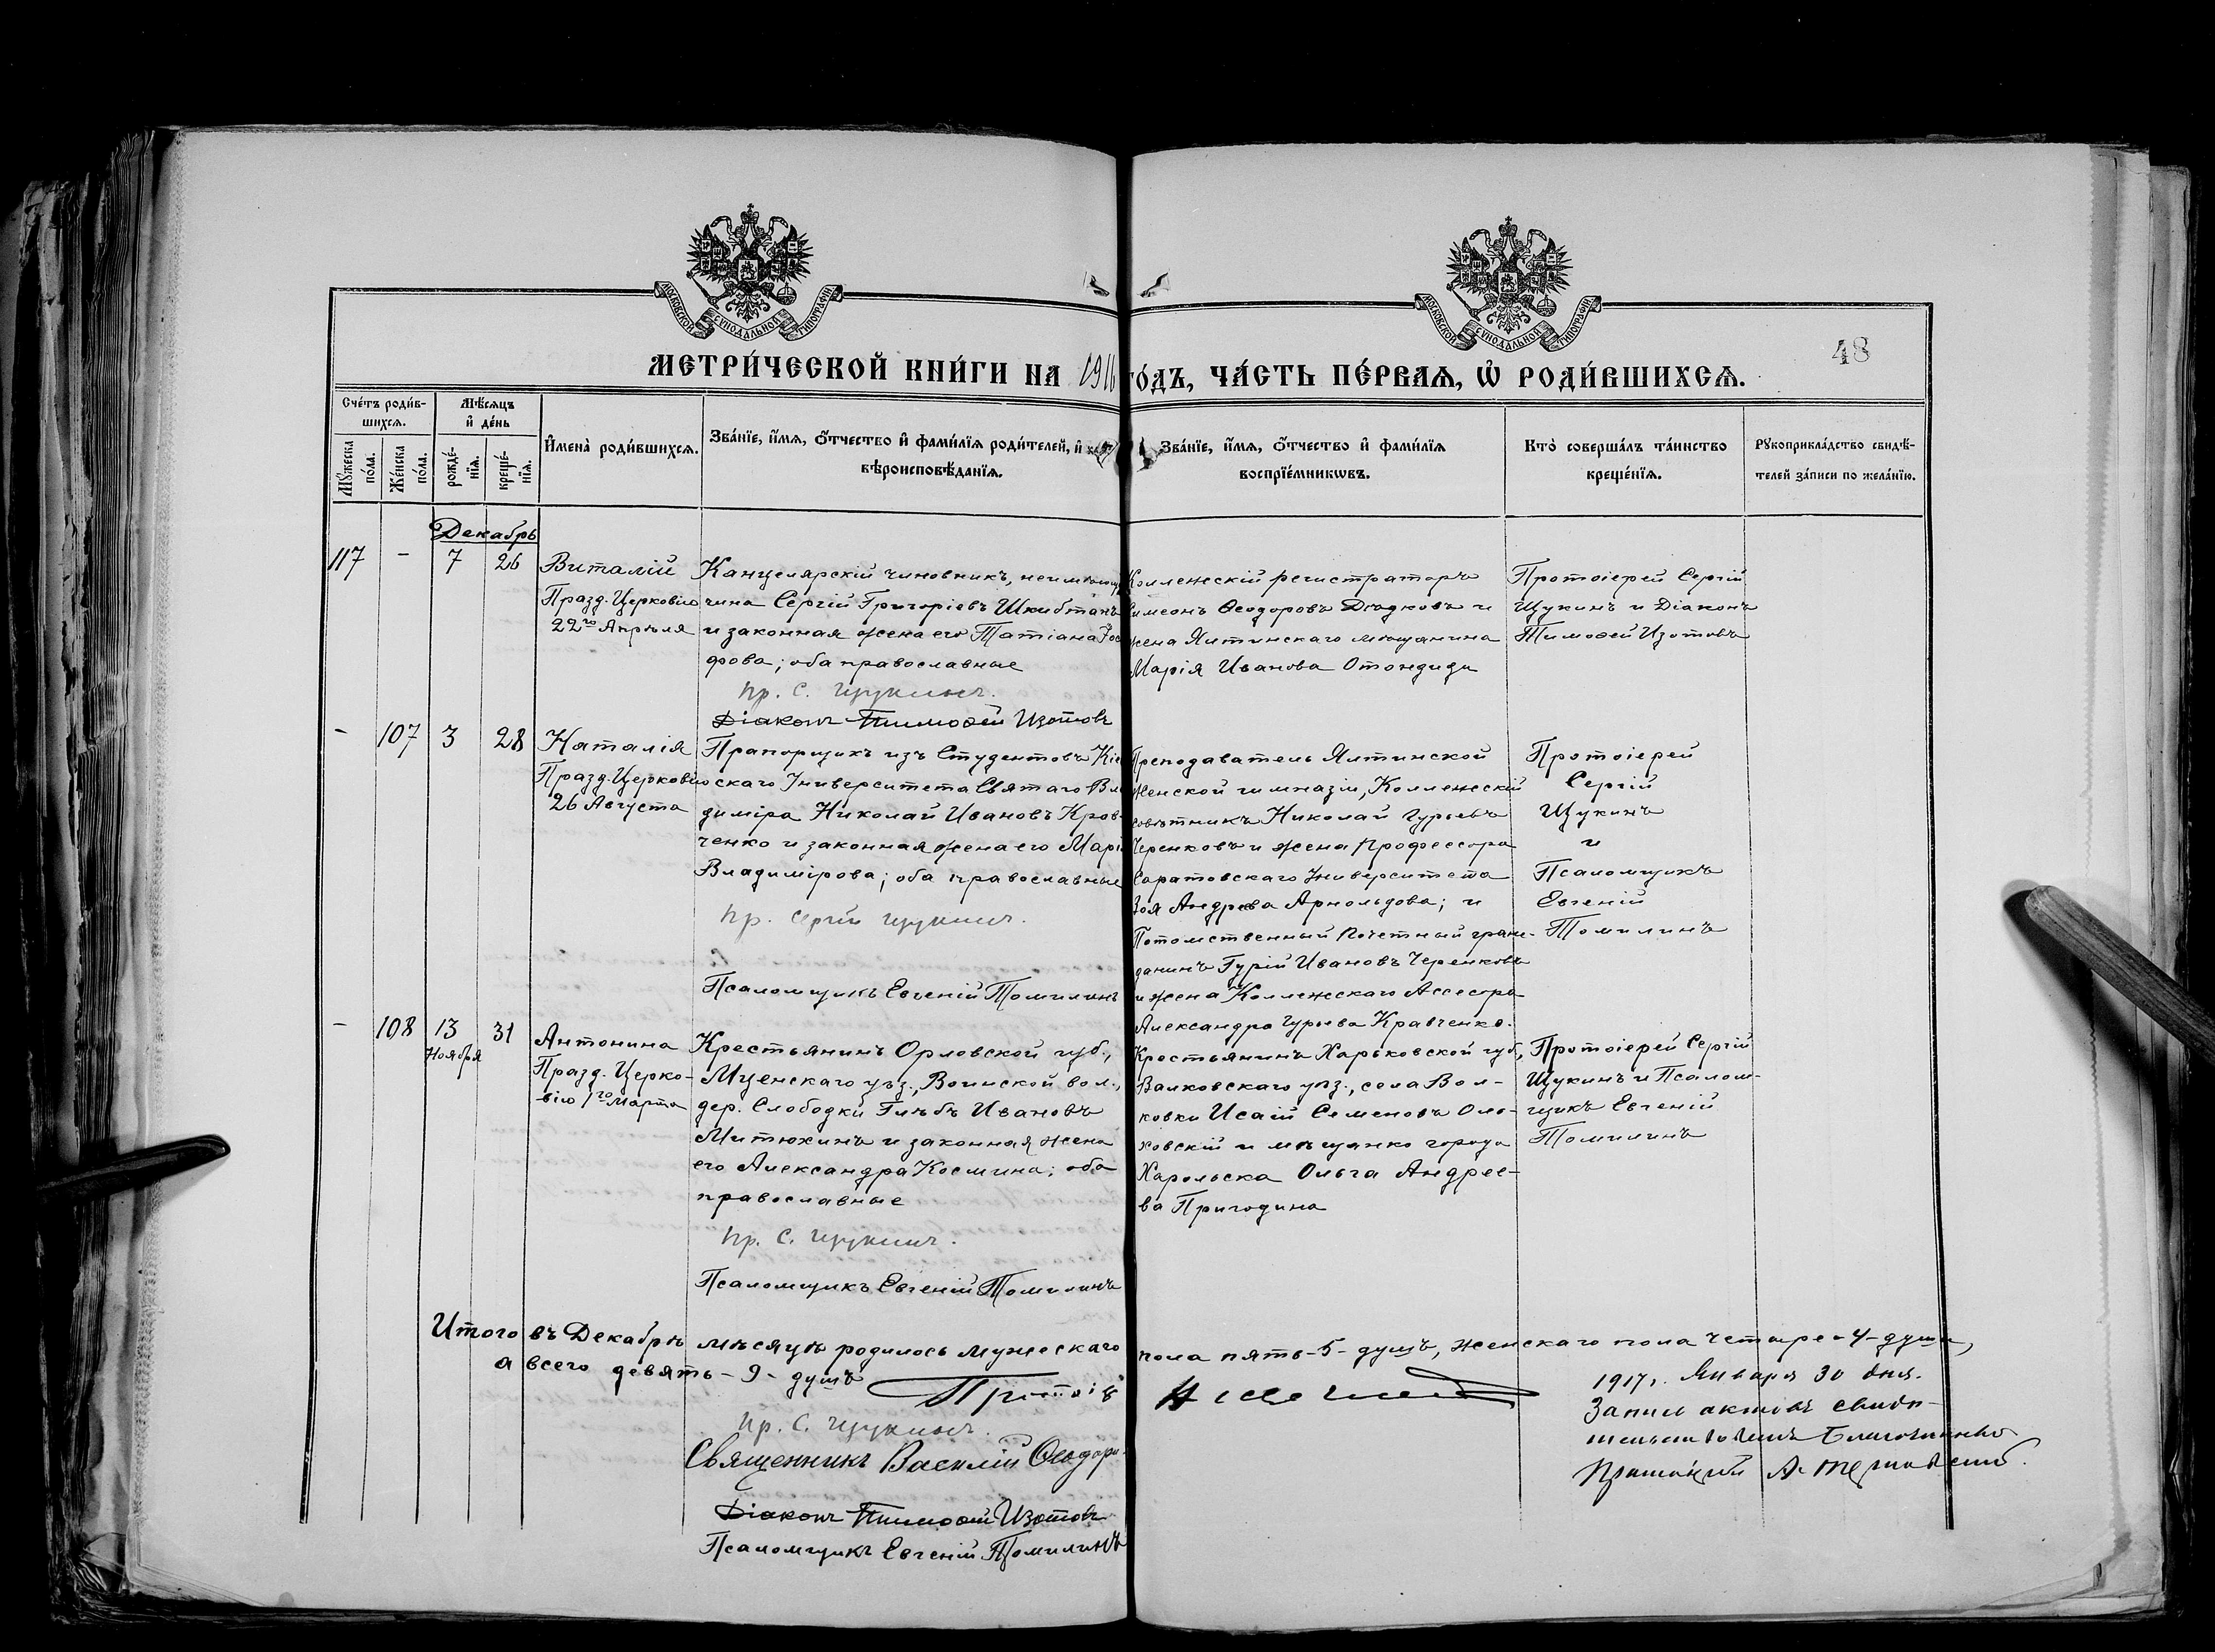 МОСКОВСКОЙ СѴНОДАЛЬНОЙ ТИПОГРАФІИ
МОСКОВСКОЙ СѴНОДАЛЬНОЙ ТИПОГРАФІИ
48
МЕТРИ́ЧЕСКОЙ КНИ́ГИ НА 1916
ГО́ДЪ, ЧА́СТЬ ПЕ́РВАѦ, Ѡ҆ РОДИ́ВШИХСѦ.
Сче́тъ роди́в-
шихсѧ.
Мꙋ́жеска по́ла.
Же́нска по́ла.
Мѣ́сѧцъ
и҆ де́нь
рожде́-
нїѧ.
креще́-
нїѧ.
И҆мена̀ роди́вшихсѧ.
Зва́нїе, и҆́мѧ, ѻ҆́тчество и҆ фами́лїѧ роди́телей, и҆
вѣроисповѣ́данїѧ.
Зва́нїе, и҆́мѧ, ѻ҆́тчество и҆ фами́лїѧ
воспрїе́мникѡвъ.
Кто̀ соверша́лъ та́инство
креще́нїѧ.
Рꙋкоприкла́дство свидѣ́-
телей за́писи по жела́нїю.
Декабрь
117 - 7 26
Виталій
Празд. Церковію
22го Апрѣля
Канцелярскій чиновникъ, неимѣющ
чина Сергій Григоріевъ Шкибтанъ
и законная жена его Татіана
фова; оба православные
Пр. С. Щукинъ.
Діаконъ Тимоѳей Изотовъ
Коллежскій регистраторъ
Симеонъ Ѳеодоровъ Дюдковъ и
жена Ялтинскаго мѣщанина
Марія Иванова Отондиди
Протоіерей Сергій
Щукинъ и Діаконъ
Тимоѳей Изотовъ
- 107 3 28
Наталія
Празд. Церковію
26 Августа
Прапорщикъ изъ Студентовъ Кіе
скаго Университета Святаго Вла
диміра Николай Ивановъ Крав-
ченко и законная жена его Марі
Владимірова; оба православные
Пр. Сергій Щукинъ.
Псаломщикъ Евгеній Томилинъ
Преподаватель Ялтинской
Женской гимназіи, Коллежскій
совѣтникъ Николай Гурьевъ
Черенковъ и жена Профессора
Саратовскаго Университета
Зоя Андрева Арнольдова; и
Потомственный Почетный граж-
данинъ Гурій Ивановъ Черенковъ
и жена Коллежскаго Ассесора
Александра Гурьева Кравченко.
Протоіерей
Сергій
Щукинъ
и
Псаломщикъ
Евгеній
Томилинъ
- 108 13 31
Ноября
Антонина
Празд. Церко-
вію 1го Марта
Крестьянинъ Орловской губ.,
Мценскаго уѣз., Воинской вол.,
дер. Слободки Глѣбъ Ивановъ
Митюхинъ и законная жена
его Александра Космина; оба
православные
Пр. С. Щукинъ.
Псаломщикъ Евгеній Томилинъ
Крестьянинъ Харьковской губ.,
Валковскаго уѣз., села Вол-
ковки Исаій Семеновъ Оло-
ховскій и мѣщанка города
Харольска Ольга Андрее-
ва Пригодина
Протоіерей Сергій
Щукинъ и Псалом-
щикъ Евгеній
Томилинъ
Итого въ Декабрѣ мѣсяцѣ родилось мужескаго пола пять -5- душъ, женскаго пола четыре -4- души,
а всего девять -9- душъ
Пр. С. Щукинъ.
Священникъ Василій
Діаконъ Тимоѳей Изотовъ
Псаломщикъ Евгеній Томилинъ
1917г. Января 30 дня.
Запись актовъ свидѣ-
тельствовалъ Благочинный
Протоіерей А. Терновскій.